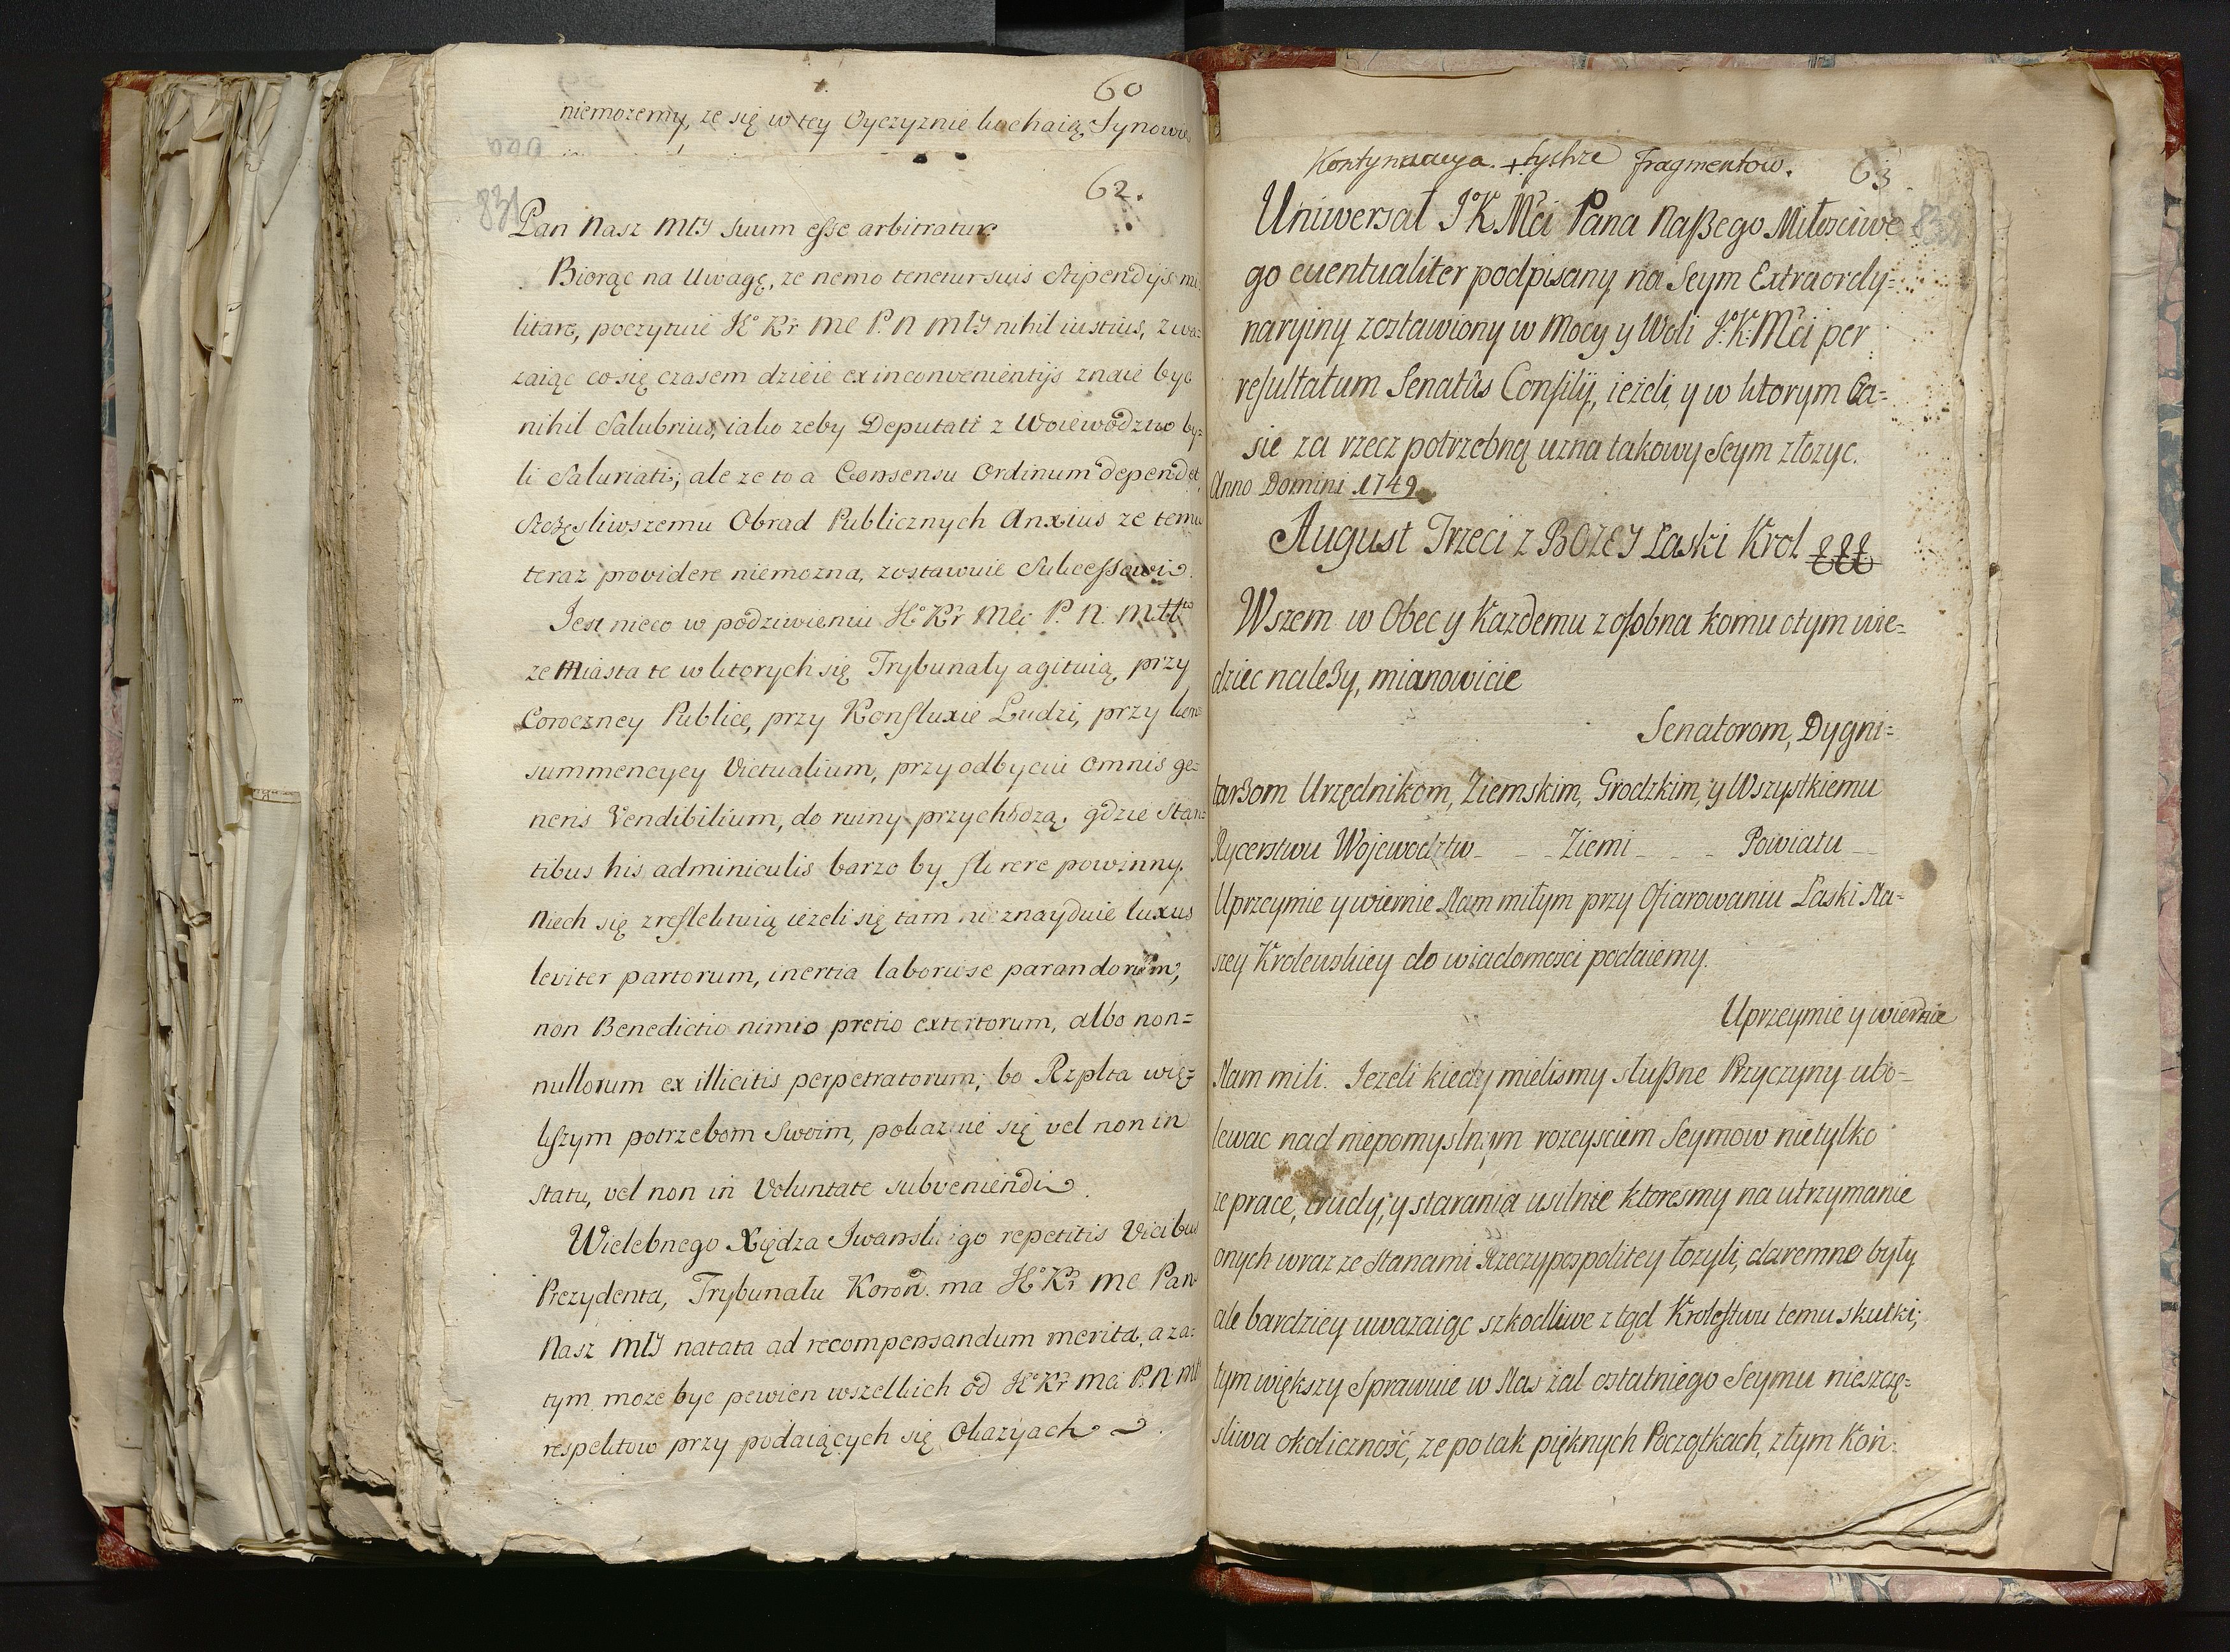 60
niemozemy, ze się w tey Oyczyznie kochaią Synowie
62.
831
Pan Nasz MŁJ suum esse arbitratur.
Biorąc na Uwagę, ze nemo tenetur suis Stipendijs mi-
litare, poczytuie Jº Kr Mc P. N MŁJ nihil iustius, zwa-
zaiąc co się czasem dzieie ex inconvenientijs znaie być
nihil Salubrius, iako zeby Deputati z Woiewodztw by-
li Salariati; ale ze to a Consensu Ordinum dependet,
Szczęsliwszemu Obrad Publicznych Anxius ze temu
teraz providere niemozna, zostawuie Sukcessowi.
Jest nieco w podziwieniu Jº Kr Mci P. N. MŁ
ze Miasta te w ktorych się Trybunały agituią, przy
Coroczney Publice, przy Konfluxie Ludzi, przy kon-
summencyey Victualium, przy odbyciu omnis ge-
neris Vendibilium, do ruiny przychodzą, gdzie Stan-
tibus his adminiculis barzo by florere powinny.
Niech się zreflektuią iezeli się tam nie znayduie luxus
leviter partorum, inertia laboriose parandorum,
non Benedictio nimio pretio extortorum, albo non=
nullorum ex illicitis perpetratorum; bo Rzplta wię-
kszym potrzebom Swoim, pokazuie się vel non in
statu, vel non in Voluntate subveniendi.
Wielebnego Xiędza Iwanskiego repetitis Vicibus
Prezydenta, Trybunału Koron. ma Jº Kr Mc Pan
Nasz MŁJ natata ad recompensandum merita, a za-
tym moze byc pewien wszelkich od Jº Kr Mci P. N. MŁ
respektow przy podaiących się Okazyach.
Kontynuacya + tychze fragmentow. 63
832
Uniwersał J K Mci Pana Naßego Miłosciwe
go euentualiter podpisany na Seym Extraordy=
naryiny zostawiony w Mocy y Woli J: K: Mci per
resultatum Senatûs Consilij, iezeli, y w ktorym Ca=
sie za rzecz potrzebną uzna takowy Seym złozyc.
Anno Domini 1749.
August Trzeci z BOZEY Łaski Krol
Wszem w Obec y Kazdemu z osobna komu o tym wie=
dziec nalezy, mianowicie
Senatorom, Dygni=
tarzom Urzędnikom, Ziemskim, Grodzkim, y Wszystkiemu
Rycerstwu Wojewodztw _ _ _ Ziemi _ _ _ Powiatu _
Uprzeymie y wiernie Nam miłym przy Ofiarowaniu Łaski Na=
szey Krolewskiey do wiadomosci podaiemy.
Uprzeymie y wiernie
Nam mili. Jezeli kiedy mielismy słußne Przyczyny ubo=
lewac nad niepomyslnym rozeysciem Seymow nietylko
ze prace, trudy, y starania usilnie ktoresmy na utrzymanie
onych wraz ze Stanami Rzeczypospolitey łozyli, daremne były
ale bardziey uwazaiąc szkodliwe z tąd Krolestwu temu skutki;
tym większy Sprawuie w Nas zal ostatniego Seymu nieszczę=
sliwa okoliczność, ze po tak pięknych Początkach, złym Kon=